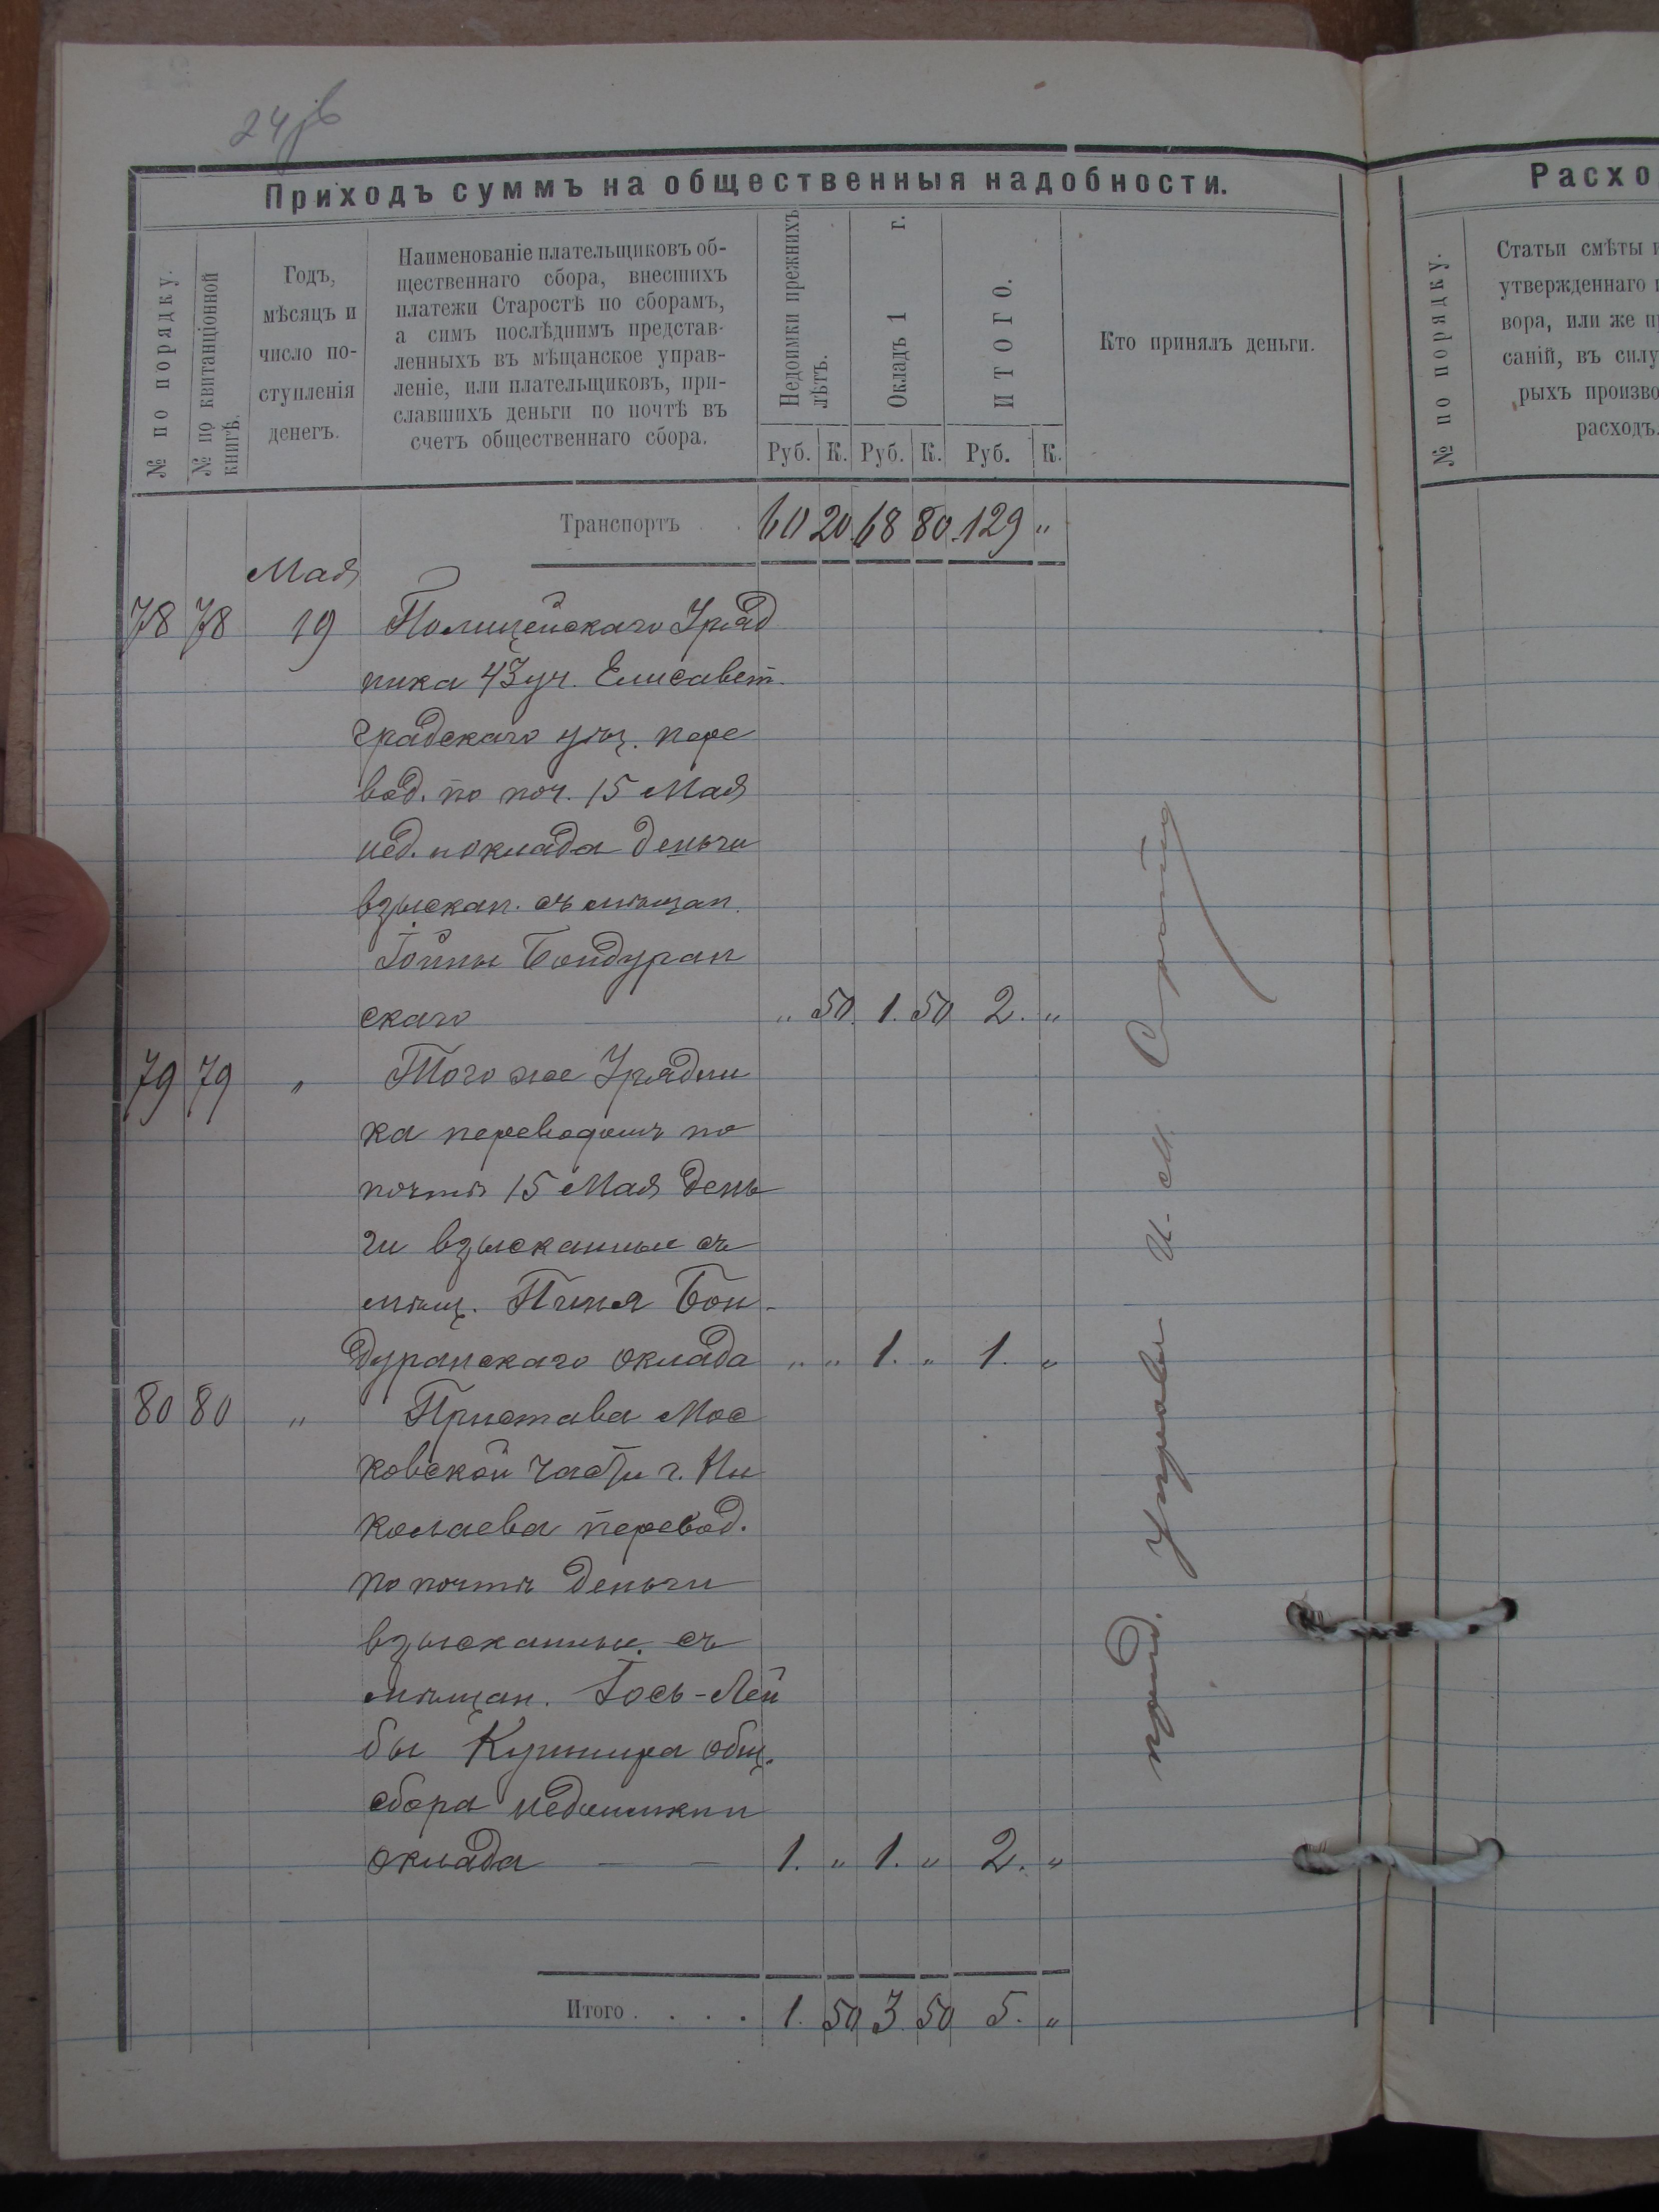 Приходъ суммъ на общественныя надобности.
№ по порядку.
№ по квитанціонной
книгѣ.
Годъ,
мѣсяцъ и
число по-
ступленія
денегъ.
Наименованіе плательщиковъ об-
щественнаго сбора, внесшихъ
платежи Старостѣ по сборамъ,
а симъ послѣднимъ представ-
ленныхъ въ мѣщанское управ-
леніе, или плательщиковъ, при-
славшихъ деньги по почтѣ въ
счетъ общественнаго сбора.
Недоимки прежнихъ
лѣтъ.
Окладъ 1 г.
ИТОГО.
Руб. К. Руб. К. Руб. К.
Кто принялъ деньги.
Транспортъ . . 60 20 68 80 129 „
Мая
78 78 19 Полицейскаго Уряд
ника 43 уч. Елисавет-
градскаго уѣз. пере
вод. по поч. 15 Мая
нед. и оклада деньги
взыскан. съ мѣщан.
Іойны Бондуран
скаго „ 50 1. 50 2. „
79 79 „ Того же Урядни
ка переводомъ по
почтѣ 15 Мая день
ги взысканные съ
мѣщ. Пиня Бон-
дуранскаго оклада „ „ 1. „ 1. „
80 80 „ Пристава Мос
ковской части г. Ни
колаева перевод.
по почтѣ деньги
взысканные съ
мѣщан. Іось-Лей
бы Кушнира общ.
сбора недоимки и
оклада — — 1. „ 1. „ 2. „
Итого . . . . 1. 50 3 50 5. „
Управы
Расхо
№ по порядку.
Статьи смѣты
утвержденнаго
вора, или же п
саній, въ силу
рыхъ произво
расходъ.